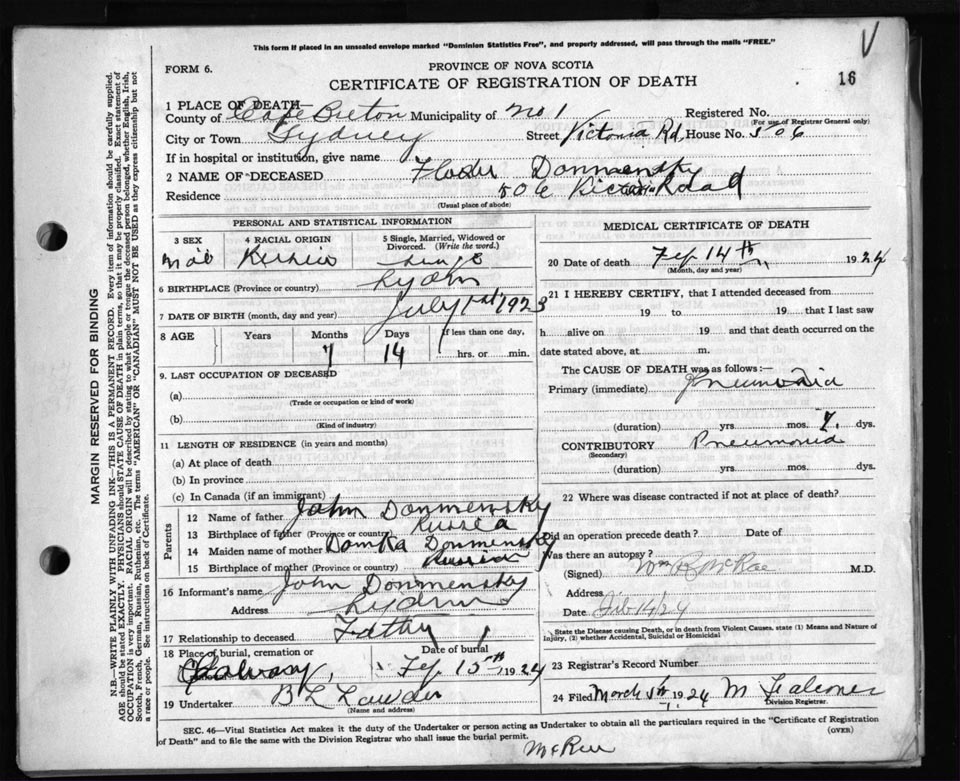 This form if placed in an unsealed envelope marked "Dominion Statistics Free", and properly addressed, will pass through the mails "FREE."
V
FORM 6.
PROVINCE OF NOVA SCOTIA
CERTIFICATE OF REGISTRATION OF DEATH
16
1 PLACE OF DEATH—
County of Cape Breton Municipality of No 1 Registered No.
(For use of Registrar General only)
City or Town Sydney Street Victoria Rd, House No. 506
If in hospital or institution, give name
2 NAME OF DECEASED Donmensky
Residence 506 Road
(Usual place of abode)
PERSONAL AND STATISTICAL INFORMATION
3 SEX
4 RACIAL ORIGIN
5 Single, Married, Widowed or Divorced. (Write the word.)
6 BIRTHPLACE (Province or country)
7 DATE OF BIRTH (month, day and year) July 1st 1923
8 AGE Years Months Days If less than one day,
7 14 hrs. or min.
9. LAST OCCUPATION OF DECEASED
(a)
(Trade or occupation or kind of work)
(b)
(Kind of industry)
11 LENGTH OF RESIDENCE (in years and months)
(a) At place of death
(b) In province
(c) In Canada (if an immigrant)
Parents
12 Name of father John Donmensky
13 Birthplace of father (Province or country) Russia
14 Maiden name of mother Domka Donmensky
15 Birthplace of mother (Province or country) Russian
16 Informant's name John Donmensky
Address
17 Relationship to deceased Father
18 Place of burial, cremation or Date of burial
Calvary, Feb 15th, 1924
19 Undertaker B L Lawder
(Name and address)
MEDICAL CERTIFICATE OF DEATH
20 Date of death Feb 14th 1924
(Month, day and year)
21 I HEREBY CERTIFY, that I attended deceased from
19 to 19 that I last saw
h alive on 19 and that death occurred on the
date stated above, at m.
The CAUSE OF DEATH was as follows:—
Primary (immediate) Pneumonia
(duration) yrs. mos. 7 dys.
CONTRIBUTORY Pneumonia
(Secondary)
(duration) yrs. mos. dys.
22 Where was disease contracted if not at place of death?
Did an operation precede death? Date of
Was there an autopsy?
(Signed) Wm R McRae M.D.
Address
Date Feb 14/24
State the Disease causing Death, or in death from Violent Causes, state (1) Means and Nature of Injury, (2) whether Accidental, Suicidal or Homicidal
23 Registrar's Record Number
24 Filed March 5th 1924 M Falconer
Division Registrar.
SEC. 46—Vital Statistics Act makes it the duty of the Undertaker or person acting as Undertaker to obtain all the particulars required in the "Certificate of Registration
of Death" and to file the same with the Division Registrar who shall issue the burial permit.
(OVER)
MARGIN RESERVED FOR BINDING
N.B.—WRITE PLAINLY WITH UNFADING INK—THIS IS A PERMANENT RECORD. Every item of information should be carefully supplied.
AGE should be stated EXACTLY. PHYSICIANS should STATE CAUSE OF DEATH in plain terms, so that it may be properly classified. Exact statement of
OCCUPATION is very important. RACIAL ORIGIN will be described by stating to what people or tongue the deceased person belonged, whether English, Irish,
Scotch, French, German, Russian, Ruthenian, etc. The terms "AMERICAN" OR "CANADIAN" MUST NOT BE USED as they express citizenship but not
a race or people. See instructions on back of Certificate.